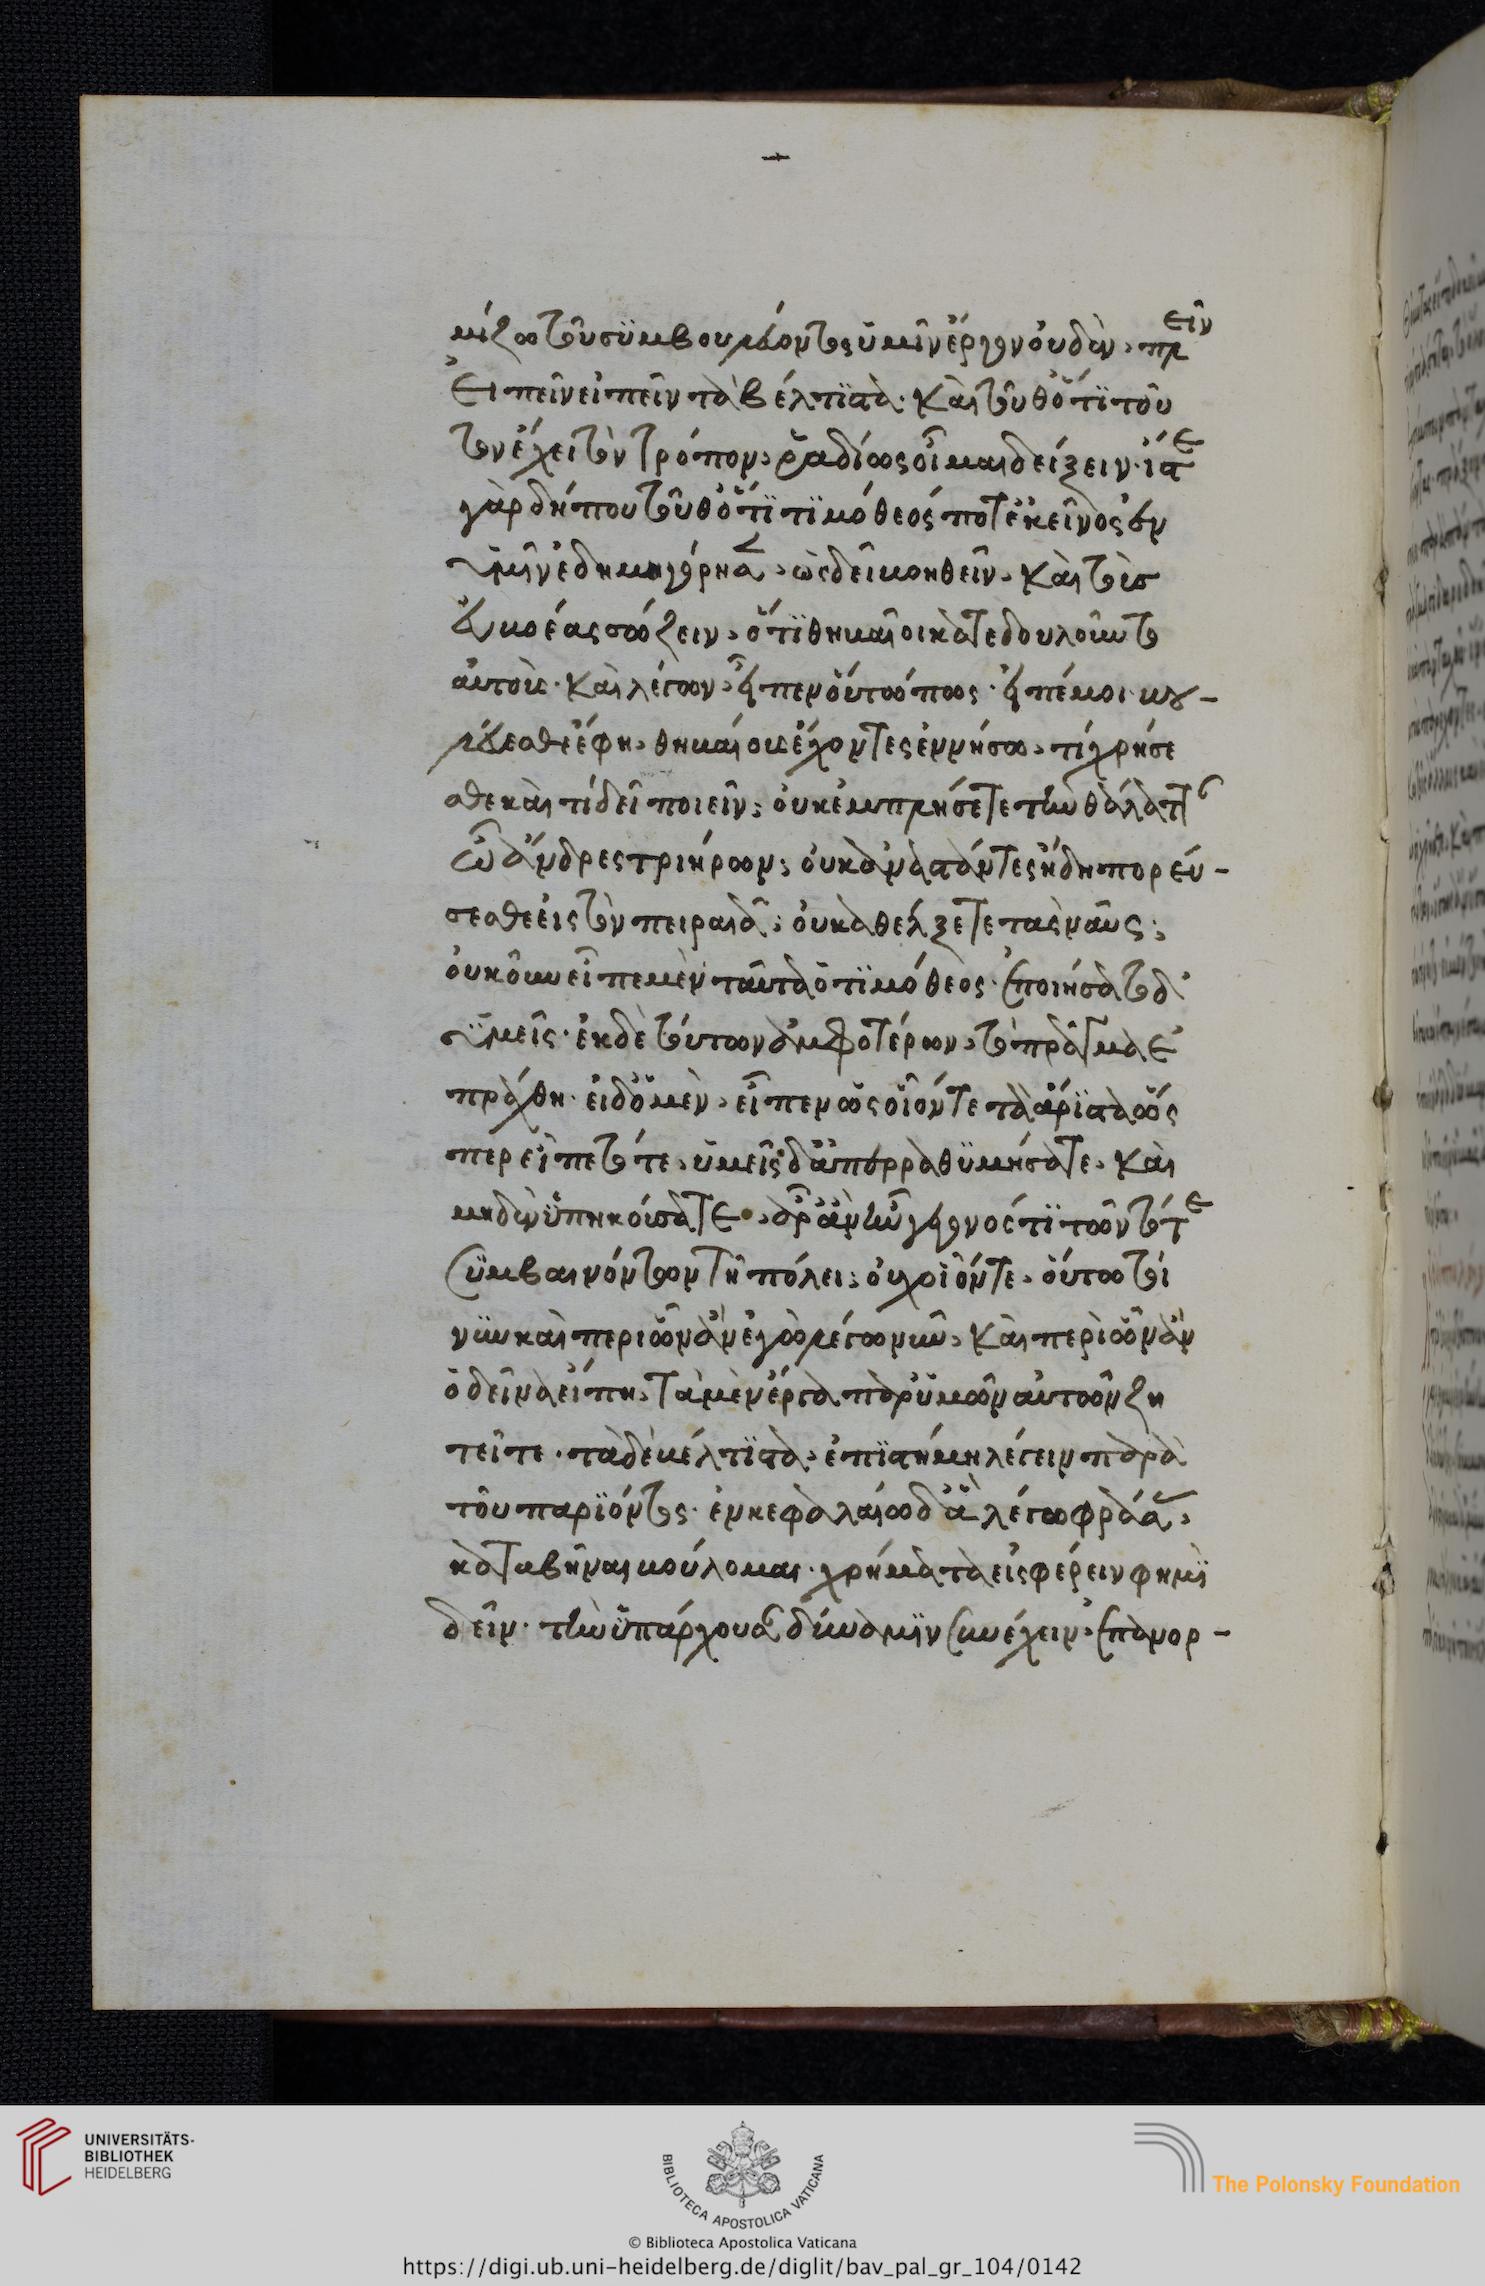 μίζω τοῦ συμβουλεύοντος ὑμῖν ἔργον οὐδὲν, πλεῖν
εἰπεῖν εἰπεῖν τὰ βέλτιστα. καὶ τοῦθ' ὅτι τοῦ
τον ἔχει τὸν τρόπον, ῥαδίως οἶμαι δείξειν. ἴστε
γὰρ δήπου τοῦθ' ὅτι τιμόθεός ποτ' ἐκεῖνος ἐν
ὑμῖν ἐδημηγόρησεν, ὡς δεῖ βοηθεῖν, καὶ τοὺς
εὐβοέας σώζειν, ὅτι θηβαῖοι κατεδουλοῦντο
αὐτοὺς. καὶ λέγων, εἶπεν οὕτω πως. εἰπέ μοι βου-
λεύεσθε ἔφη, θηβαίους ἔχοντες ἐν νήσω, τί χρήσε
σθε καὶ τί δεῖ ποιεῖν; οὐκ ἐμπλήσετε τὴν θάλατταν
ὦ ἄνδρες τριήρων; οὐκ ἀναστάντες ἤδη πορεύ-
σεσθε εἰς τὸν πειραιᾶ; οὐ καθέλξετε τὰς ναῦς;
οὐκοῦν εἶπε μὲν ταῦτα ὁ τιμόθεος. ἐποιήσατο δ'
ὑμεῖς. ἐκ δὲ τούτων ἀμφοτέρων, τὸ πρᾶγμα ἐ
πράχθη. εἰ δ' ὁ μὲν, εἶπεν ὡς οἷόν τε τὰ ἄριστα ὥς
περ εἶπε τότε, ὑμεῖς δ' ἀπερραθυμήσατε, καὶ
μηδὲν ὑπηκούσατε, ἆρ' ἂν ἦν γεγονός τι τῶν τότε
συμβαινόντων τῆ πόλει; οὐχ οἷόν τε, οὕτω τοί
νυν καὶ περὶ ὧν ἂν ἐγὼ λέγω νῦν, καὶ περὶ ὧν ἂν
ὁ δεῖνα εἴπη, τὰ μὲν ἔργα παρ' ὑμῶν αὐτῶν ζη
τεῖτε. τὰ δὲ βέλτιστα, ἐπιστήμη λέγειν παρὰ
τοῦ παριόντος. ἐν κεφαλαίω δ' ἃ λέγω φράσας,
καταβῆναι βούλομαι. χρήματα εἰσφέρειν φημὶ
δεῖν. τὴν ὑπάρχουσαν δύναμιν συνέχειν, ἐπανορ-
UNIVERSITÄTS-
BIBLIOTHEK
HEIDELBERG
BIBLIOTECA APOSTOLICA VATICANA
The Polonsky Foundation
© Biblioteca Apostolica Vaticana
https://digi.ub.uni-heidelberg.de/diglit/bav_pal_gr_104/0142